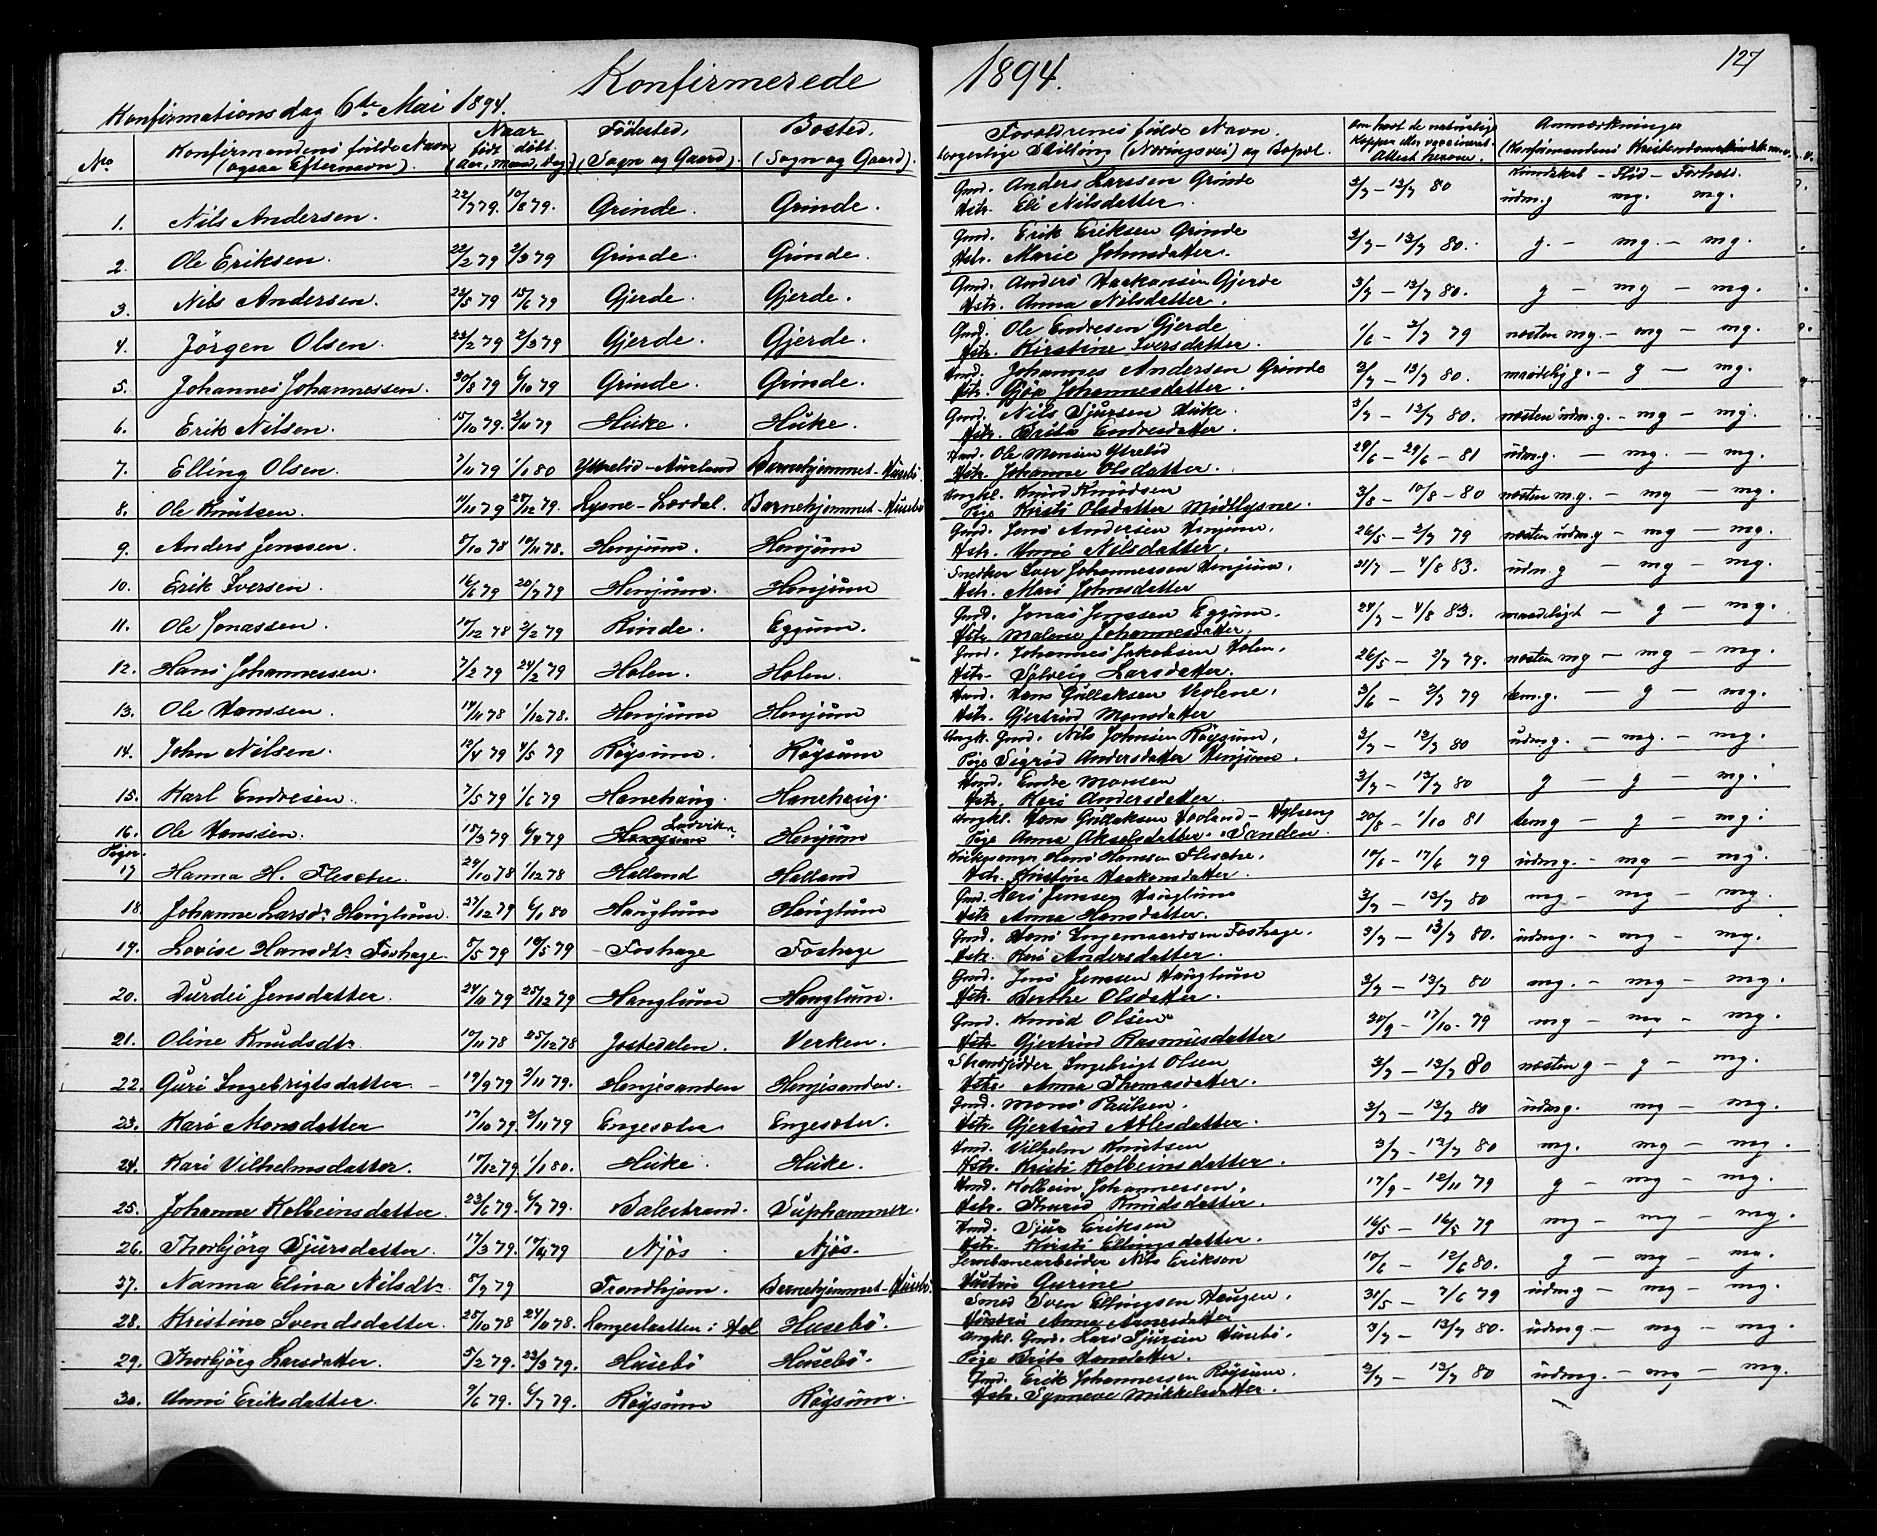 Konfirmerede 1894.
127
Konfirmationsdag 6te Mai 1894.
No. Konfirmandens fulde Navn (ogsaa Efternavn). Naar født døbt (Aar, Maan, Dag.) Fødested, (Sogn og Gaard). Bosted, (Sogn og Gaard). Forældrenes fulde Navn, borgerlige Stilling (Næringsvei) og Bopæl. Om havt de naturlige Kopper eller vaccineret. Anmærkninger
Kundskab - Flid - Forhold.
1. Nils Andersen. 22/7 79. 10/8 79. Grinde. Grinde. Gmd. Anders Larssen Grinde 3/7 - 13/7 80 udm.g mg. mg.
Hstr. Eli Nilsdatter.
2. Ole Eriksen. 22/2 79 2/3 79 Grinde. Grinde. Gmd. Erik Eriksen Grinde 3/7 - 13/7 80. g. - mg. - mg.
Hstr. Marie Johnsdatter.
3. Nils Andersen. 23/5 79 15/6 79 Gjerde. Gjerde. Gmd. Anders Haakonsen Gjerde 3/7 - 13/7 80. g - mg - mg.
Hstr. Anna Nilsdatter.
4. Jörgen Olsen. 22/2 79 2/3 79 Gjerde. Gjerde. Gmd. Ole Endresen Gjerde 1/6 - 2/7 79 næsten mg. - mg - mg.
Hstr. Kirstine Iversdatter.
5. Johannes Johannessen. 30/8 79 6/10 79 Grinde. Grinde. Hmd. Johannes Andersen Grinde 3/7 - 13/7 80. maadelig g. - g - mg.
Hstr. Gjöa Johannesdatter.
6. Erik Nilsen. 15/10 79. 2/11 79 Huke. Huke. Gmd. Nils Sjursen Huke. 3/7 - 13/7 80. næsten udm.g. - mg - mg.
Hstr. Brita Endresdatter.
7. Elling Olsen. 7/11 79 1/1 80 Yttrelid - Aurland Barnehjemmet - Husebö Hmd. Ole Monsen Ytrelid 29/6 - 29/6 - 81 udm.g. - mg. - mg.
Hstr. Johanne Olsdatter.
8. Ole Knutsen. 11/11 79 28/12 79. Lysne - Lærdal. Barnehjemmet - Husebö Ungkl. Knud Knudsen 3/8 - 10/8 - 80 næsten m.g. - mg - mg.
Pige Kirsti Olsdatter Midtlysne.
9. Anders Jenssen. 5/10 78 10/11 78. Henjum. Henjum Gmd. Jens Andersen Henjum. 26/5 - 2/7 79 næsten udm.g - mg - mg.
Hstr. Anna Nilsdatter.
10. Erik Iversen. 16/6 79 20/7 79 Henjum. Henjum Snedker Iver Johannessen Henjum. 21/7 - 4/8 83. udm.g - mg - mg.
Hstr. Mari Johnsdatter
11. Ole Jonassen. 10/12 78 2/2 79 Rinde. Eggum. Gmd. Jonas Jenssen Eggum. 24/7 - 4/8 83. maadeligt - g - mg.
Hstr. Malene Johannesdatter.
12. Hans Johannessen. 7/2 79 24/2 79 Holen. Holen. Gmd. Johannes Jakobsen Holen. 26/5 - 2/7 79. næsten mg - mg - mg.
Hstr. Sölveig Larsdatter.
13. Ole Hanssen. 14/11 78 1/12 78. Henjum Henjum Hmd. Hans Gullaksen Veslene. 3/6 - 2/7 79 tem.g. - g - mg.
Hstr. Gjertrud Monsdatter
14. John Nilsen. 13/4 79 4/5 79 Röysum. Röysum Ungk. Gmd. Nils Johnsen Röysum, 3/7 - 13/7 80 udm.g. - mg. - mg.
Pige Sigrid Andersdatter Henjum.
15. Karl Endresen. 7/5 79 1/6 79 Hanehaug. Hanehaug. Hmd. Endre Monsen 3/7 - 13/7 80 g - g - mg.
Hstr. Kari Andersdatter.
16. Ole Hanssen. 15/3 79 6/4 79 Henjum Henjum Ungkl. Hans Gullaksen Hovland - 20/8 - 1/10 81 tem g - g - mg.
Pige Anna Akselsdatter. Sanden.
Piger.
17 Hanna H. Flesche. 29/10 78 1/12 78 Halland Halland Kirkesanger Hans Hanssen Flesche. 10/6 - 17/6 79 udm.g. - mg - mg.
Hstr. Kristine Haakonsdatter.
18. Johanne Larsdr. Hauglum. 27/12 79 6/1 80 Hauglum Hauglum Gmd. Lars Jenssen Hauglum 3/7 - 13/7 80 mg - mg - mg.
Hstr. Anna Hansdatter.
19. Lovise Hansdtr. Foshage. 5/5 79 19/5 79 Foshage Foshage Gmd. Hans Ingemardsen Foshage. 3/7 - 13/7 80. udm.g. - mg - mg.
Hstr. Kari Andersdatter.
20. Durdei Jensdatter. 24/11 79 25/12 79 Hauglum Hauglum. Gmd. Jens Jenssen Hauglum 3/7 - 13/7 80 mg. - mg - mg.
Hstr. Berthe Olsdatter.
21. Oline Knudsdtr. 10/11 78 25/12 78 Jostedalen. Verken. Gmd. Knud Olsen 30/9 - 17/10 - 79 mg - mg - mg.
Hstr. Gjertrud Rasmusdatter
22. Guri Ingebrigtsdatter. 19/9 79 2/11 79. Henjesanden Henjesanden. Strandsidder Ingebrigt Olsen 3/7 - 13/7 80 næsten g - g - mg.
Hstr. Anna Thomasdatter.
23. Kari Monsdatter 17/10 79. 2/11 79 Engesæter Engesæter. Gmd. Mons Paulsen. 3/7 - 13/7 80 udm.g. mg - mg.
Hstr. Gjertrud Atlesdatter.
24. Kari Vilhelmsdatter. 10/12 79 1/1 80. Huke. Huke. Hmd. Vilhelm Knutsen 3/7 - 13/7 80 mg. mg - mg.
Hstr. Kristi Kolbeinsdatter.
25. Johanne Kolbeinsdatter. 23/6 79. 6/7 79. Balestrand. Suphammer. Hmd. Kolbein Johannessen. 17/9 - 12/11 79 g - mg - mg.
Hstr. Thurid Knudsdatter.
26. Thorbjörg Sjursdatter. 17/3 79. 17/4 79 Njös Njös. Hmd. Sjur Eriksen 16/5 - 16/5 79 mg - mg - mg.
Hstr. Kirsti Ellingsdatter.
27. Nanna Elina Nilsdtr. 5/7 79 Trondhjem. Barnehjemmet - Husebö. Jernbanearbeider Nils Eriksen 10/6 - 12/6 80. g - mg - mg
Hustru Gurine
28. Kristine Svendsdatter. 28/10 78 24/11 78. Langeslaatten i Hol Husebö. Smed Sven Ellingsen Haugen. 31/5 - 7/6 79 udm.g - mg - mg.
Hustru Anna Arnesdatter
29. Thorbjörg Larsdatter. 5/2 79. 23/3 79. Husebö Husebö. Ungkl. Gmd. Lars Sjursen Husebö. 3/7 - 13/7 80. udm.g - mg - mg.
Pige Brita Hansdatter.
30. Anna Eriksdatter. 7/6 79. 6/7 79. Röysum Röysum. Gmd. Erik Johannessen Röysum. 3/7 - 13/7 80 udm.g. - mg - mg.
Hstr. Synneve Mikkelsdatter.